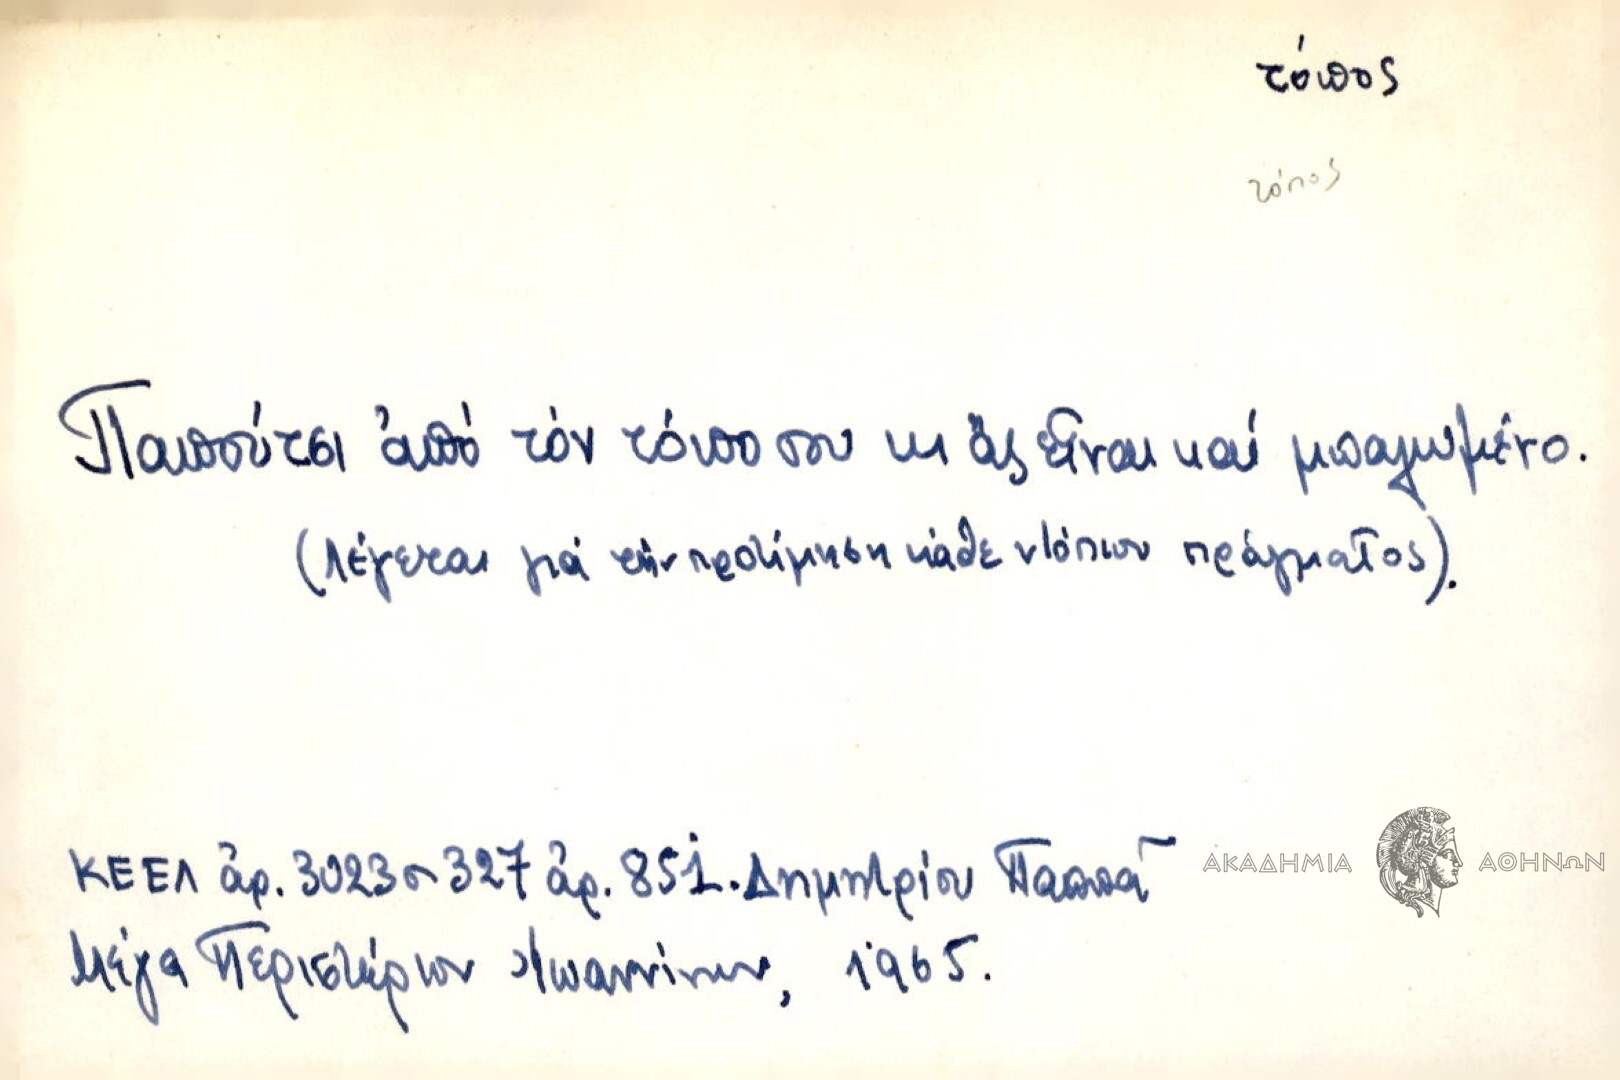 τόπος
τόπος
Παπούτσι ἀπό τόν τόπο σου κι ἄς εἶναι καί μπαλωμένο.
(Λέγεται γιά τήν προτίμηση κάθε ντόπιου πράγματος).
ΚΕΕΛ ἀρ. 3023 σ 327 ἀρ. 851. Δημητρίου Παππᾶ
Μέγα Περιστέριον Ἰωαννίνων, 1965.
ΑΚΑΔΗΜΙΑ ΑΘΗΝΩΝ